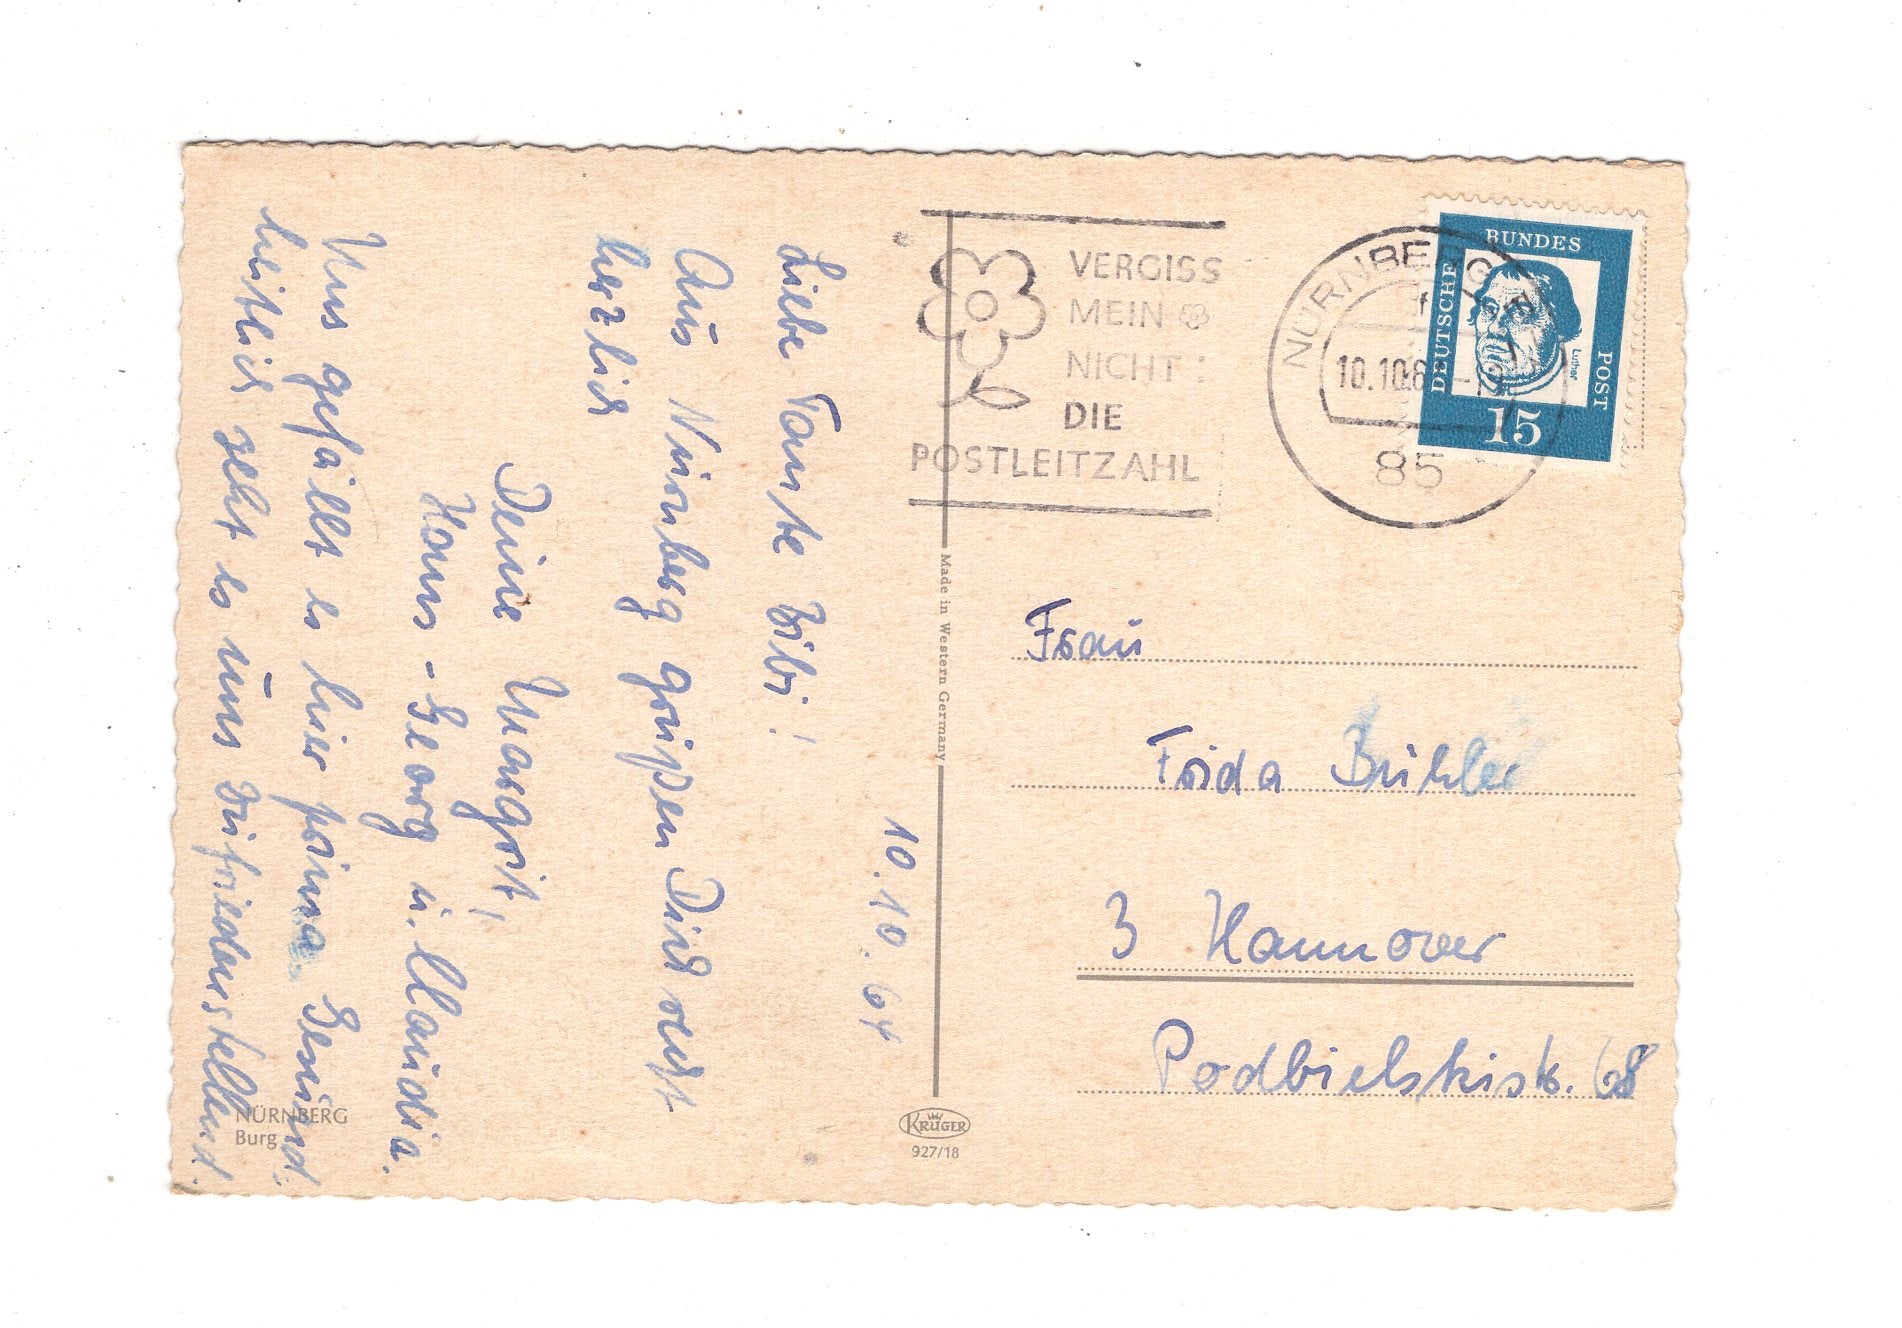 10.10.64
Liebe Tante Bibi!
Aus Nürnberg grüßen Dich recht
herzlich
Deine Margrit,
Hans-Georg u. Claudia.
Uns gefällt es hier prima. Gesund-
heitlich geht es uns zufriedenstellend.
NÜRNBERG
Burg
Made in Western Germany
KRÜGER
927/18
VERGISS
MEIN
NICHT:
DIE
POSTLEITZAHL
NÜRNBERG
10.10.6
85
DEUTSCHE
BUNDES
POST
Luther
15
Frau
Frida Bühler
3 Hannover
Podbielskistr. 68